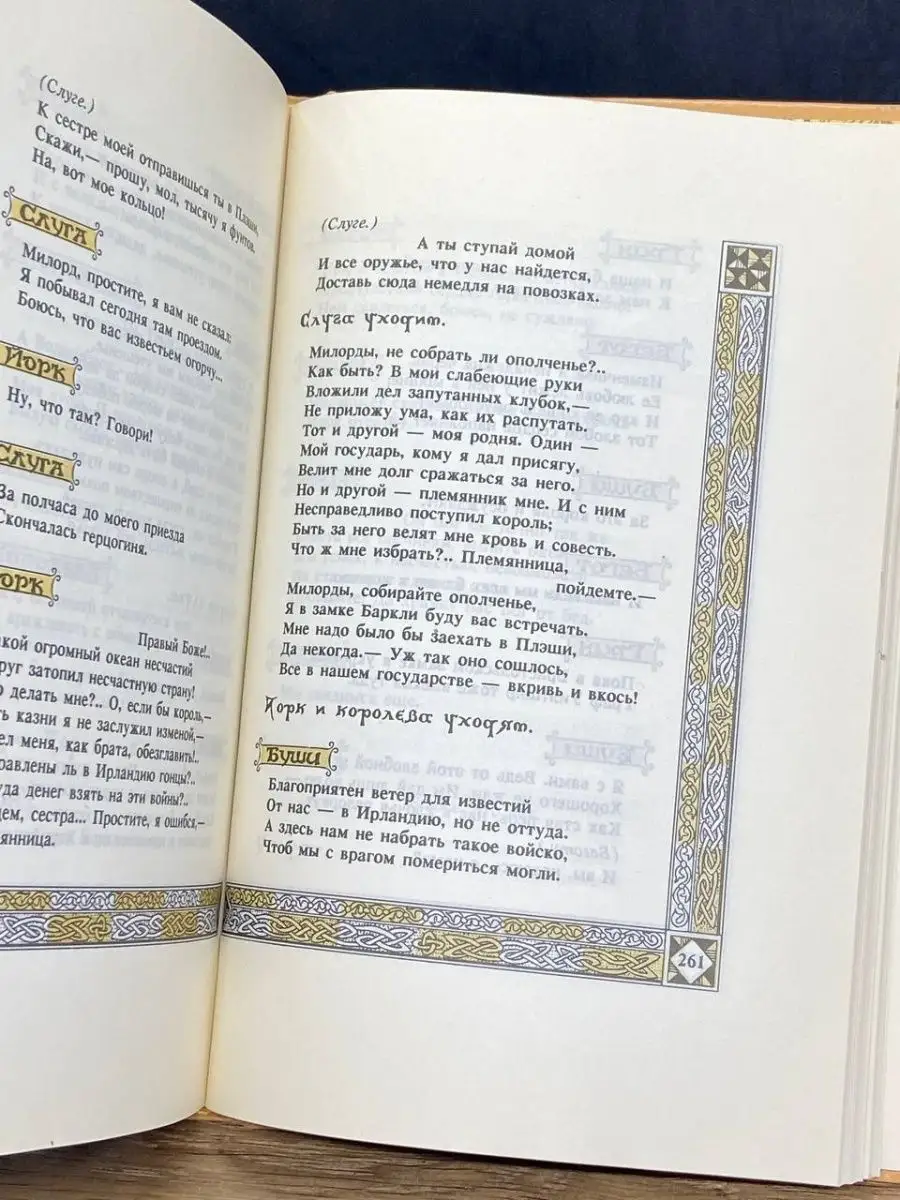 (Слуге.)
К сестре моей отправишься ты в Плэши.
Скажи,— прошу, мол, тысячу я фунтов.
На, вот мое кольцо!
СЛУГА
Милорд, простите, я вам не сказал:
Я побывал сегодня там проездом.
Боюсь, что вас известьем огорчу...
ЙОРК
Ну, что там? Говори!
СЛУГА
За полчаса до моего приезда
Скончалась герцогиня.
ЙОРК
Правый Боже!..
огромный океан несчастий
затопил несчастную страну!
делать мне?.. О, если бы король,—
казни я не заслужил изменой,—
меня, как брата, обезглавить!..
ль в Ирландию гонцы?..
денег взять на эти войны?..
сестра... Простите, я ошибся,—
(Слуге.)
А ты ступай домой
И все оружье, что у нас найдется,
Доставь сюда немедля на повозках.
Слуга уходит.
Милорды, не собрать ли ополченье?..
Как быть? В мои слабеющие руки
Вложили дел запутанных клубок,—
Не приложу ума, как их распутать.
Тот и другой — моя родня. Один —
Мой государь, кому я дал присягу,
Велит мне долг сражаться за него.
Но и другой — племянник мне. И с ним
Несправедливо поступил король;
Быть за него велят мне кровь и совесть.
Что ж мне избрать?.. Племянница,
пойдемте.—
Милорды, собирайте ополченье,
Я в замке Баркли буду вас встречать.
Мне надо было бы заехать в Плэши,
Да некогда.— Уж так оно сошлось,
Все в нашем государстве — вкривь и вкось!
Йорк и королева уходят.
БУШИ
Благоприятен ветер для известий
От нас — в Ирландию, но не оттуда.
А здесь нам не набрать такое войско,
Чтоб мы с врагом помериться могли.
261